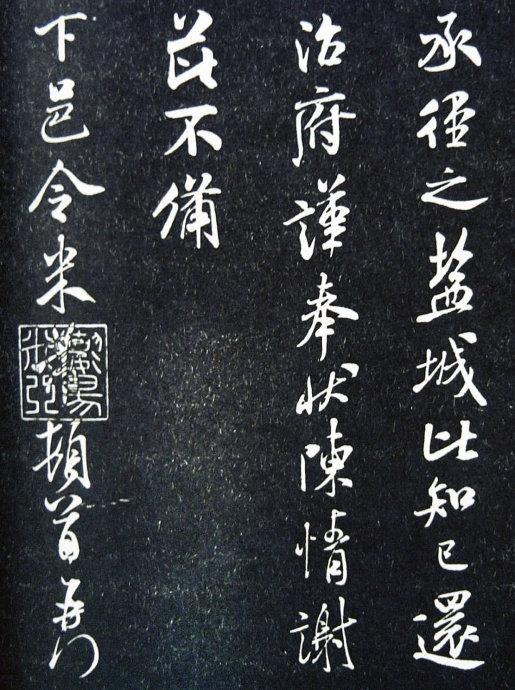 承徑之盐城比知已還
治府謹奉状陳情謝
芘不備
下邑令米頓首再拜